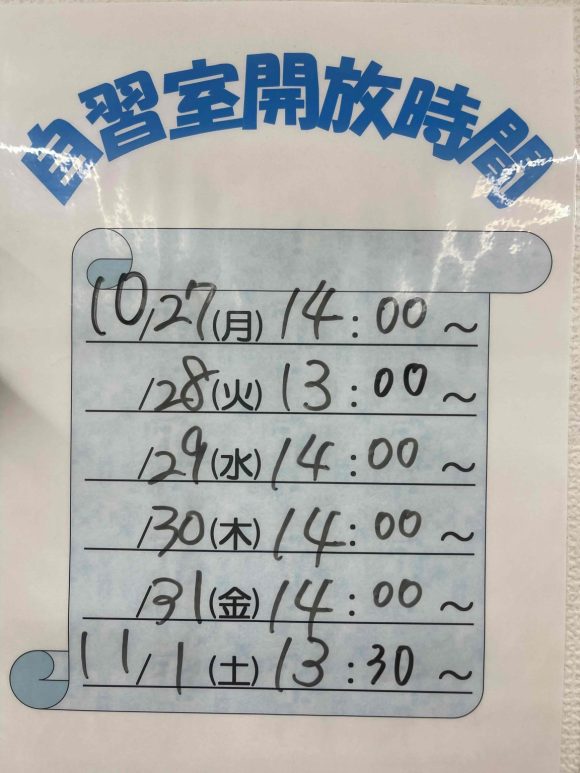 自習室開放時間
10/27(月) 14:00~
/28(火) 13:00~
/29(水) 14:00~
/30(木) 14:00~
/31(金) 14:00~
11/1(土) 13:30~